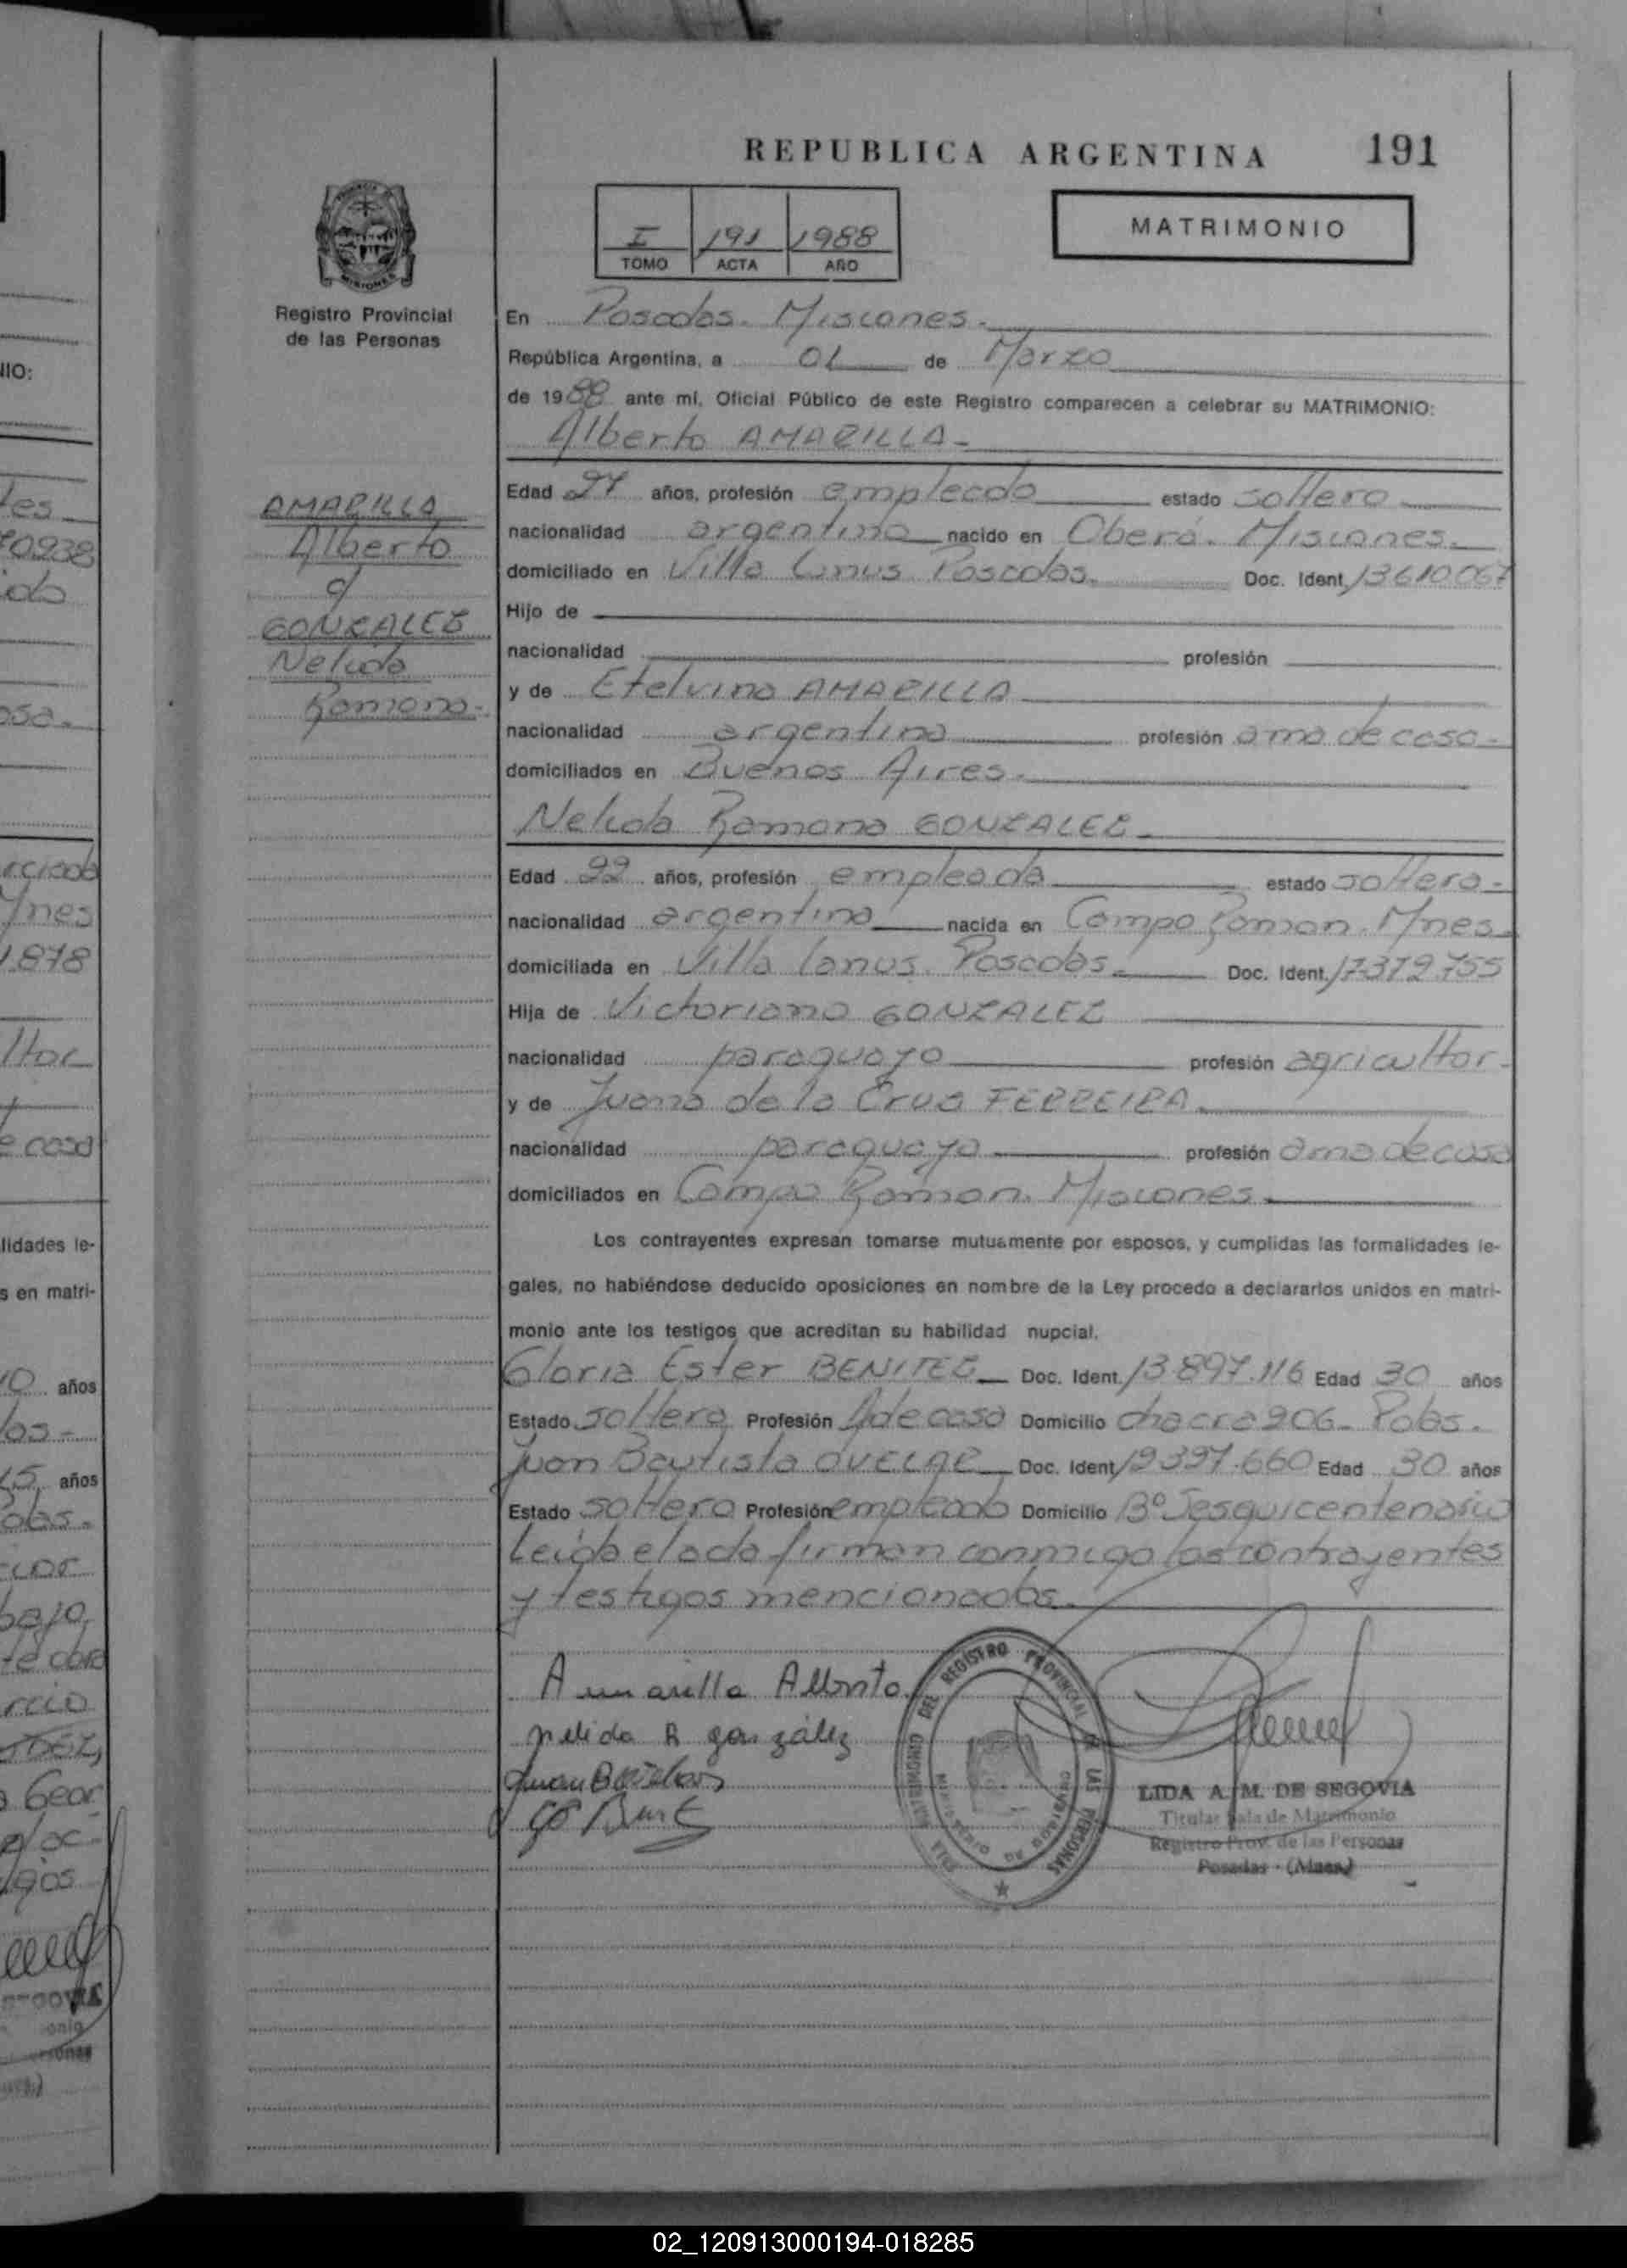 REPUBLICA ARGENTINA 191
I 191 1988
TOMO ACTA AÑO
MATRIMONIO
Registro Provincial
de las Personas
AMARILLA
Alberto
c/
GONZALEZ
Nelida
Ramona.-
En Posadas. Misiones.-
República Argentina, a 01 de Marzo
de 1988 ante mí, Oficial Público de este Registro comparecen a celebrar su MATRIMONIO:
Alberto AMARILLA-
Edad 27 años, profesión empleado estado soltero
nacionalidad argentina nacido en Oberá. Misiones.
domiciliado en Villa Lanus Posadas. Doc. Ident. 13610067
Hijo de
nacionalidad profesión
y de Etelvina AMARILLA
nacionalidad argentina profesión ama de casa-
domiciliados en Buenos Aires.
Nelida Ramona GONZALEZ-
Edad 22 años, profesión empleada estado soltera-
nacionalidad argentina nacida en Campo Ramon. Mnes.
domiciliada en Villa Lanus. Posadas. Doc. Ident. 17379755
Hija de Victoriano GONZALEZ
nacionalidad paraguayo profesión agricultor-
y de Juana de la Cruz FERREIRA.
nacionalidad paraguaya profesión ama de casa
domiciliados en Campo Ramon. Misiones.
Los contrayentes expresan tomarse mutuamente por esposos, y cumplidas las formalidades le-
gales, no habiéndose deducido oposiciones en nombre de la Ley procedo a declararlos unidos en matri-
monio ante los testigos que acreditan su habilidad nupcial.
Gloria Ester BENITEZ Doc. Ident. 13.897.116 Edad 30 años
Estado soltera Profesión A de casa Domicilio chacra 206- Pdas.
Juan Bautista OVELAR Doc. Ident. 12397.660 Edad 30 años
Estado soltero Profesión empleado Domicilio Bº Sesquicentenario
Leida el acta firman conmigo los contrayentes
y testigos mencionados.
Amarilla Alberto
nelida R gonzález
LIDA A. M. DE SEGOVIA
Titular Sala de Matrimonio
Registro Prov. de las Personas
Posadas - (Mnes.)
DEL REGISTRO PROVINCIAL DE LAS PERSONAS
02_120913000194-018285